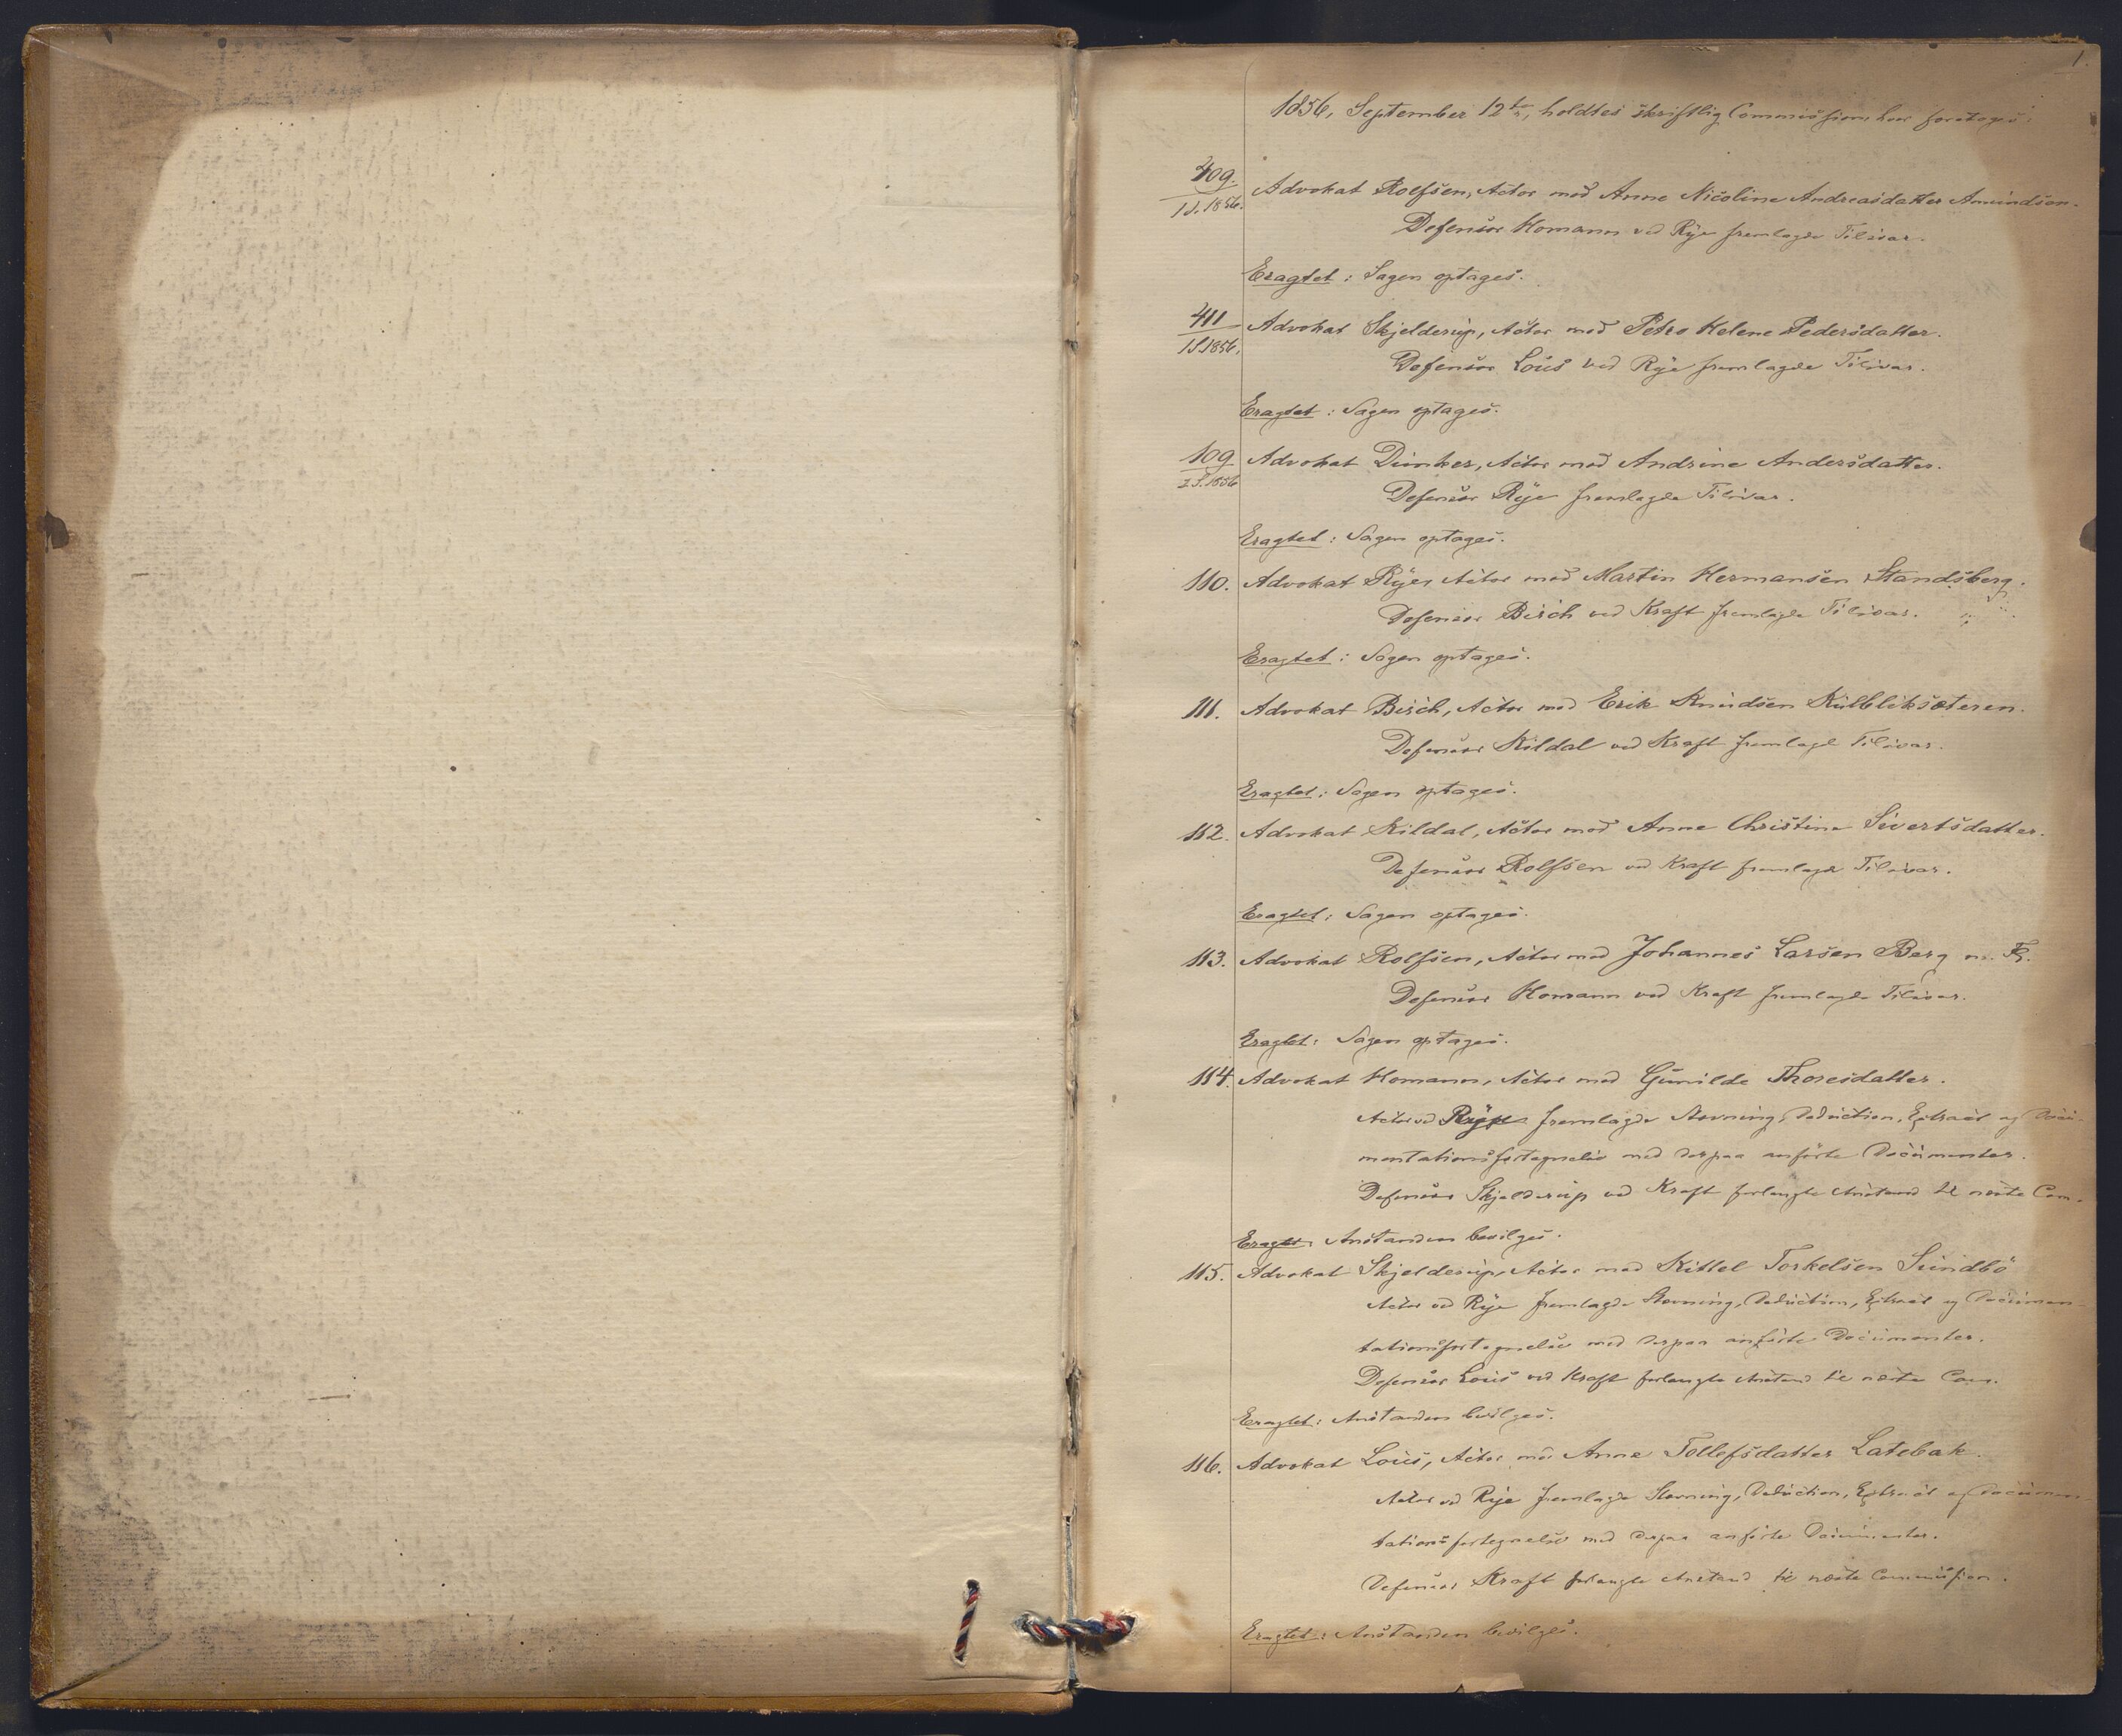 1.
1856, September 12te, holdtes skriftlig Commission, hvor foretoges:
409.
1 S. 1856. Advokat Rolfsen, Actor mod Anne Nicoline Andreasdatter Amundsen.
Defensor Homann ved Rye fremlagde Tilsvar.
Eragtet: Sagen optages.
411
1 S. 1856. Advokat Skjelderup, Actor mod Petra Helene Pedersdatter.
Defensor Lous ved Rye fremlagde Tilsvar.
Eragtet: Sagen optages.
109
2 S. 1856 Advokat Dunker, Actor mod Andrine Andersdatter.
Defensor Rye fremlagde Tilsvar.
Eragtet: Sagen optages.
110. Advokat Rye, Actor mod Martin Hermansen Standsberg.
Defensor Birch ved Kraft fremlagde Tilsvar.
Eragtet: Sagen optages.
111. Advokat Birch, Actor mod Erik Knudsen Kulbliksæteren.
Defensor Kildal ved Kraft fremlagde Tilsvar.
Eragtet: Sagen optages.
112. Advokat Kildal, Actor mod Anne Christine Sivertsdatter.
Defensor Rolfsen ved Kraft fremlagde Tilsvar.
Eragtet: Sagen optages.
113. Advokat Rolfsen, Actor mod Johannes Larsen Berg m. Fl.
Defensor Homann ved Kraft fremlagde Tilsvar.
Eragtet: Sagen optages.
114. Advokat Homann, Actor mod Gunilde Thoresdatter.
Actor ved Rye fremlagde Stevning, Deduction, Extract og Docu-
mentationsfortegnelse med derpaa anförte Documenter.
Defensor Skjelderup ved Kraft forlangte Anstand til næste Com.
Eragtet: Anstanden bevilges.
115. Advokat Skjelderup, Actor mod Kittel Torkelsen Sundbö
Actor ved Rye fremlagde Stevning, Deduction, Extract og Documen-
tationsfortegnelse med derpaa anförte Documenter.
Defensor Lous ved Kraft forlangte Anstand til næste Com.
Eragtet: Anstanden bevilges.
116. Advokat Lous, Actor mod Anne Tollefsdatter Latebak.
Actor ved Rye fremlagde Stevning, Deduction, Extract og Documen-
tationsfortegnelse med derpaa anförte Documenter.
Defensor Kraft forlangte Anstand til næste Commission.
Eragtet: Anstanden bevilges.